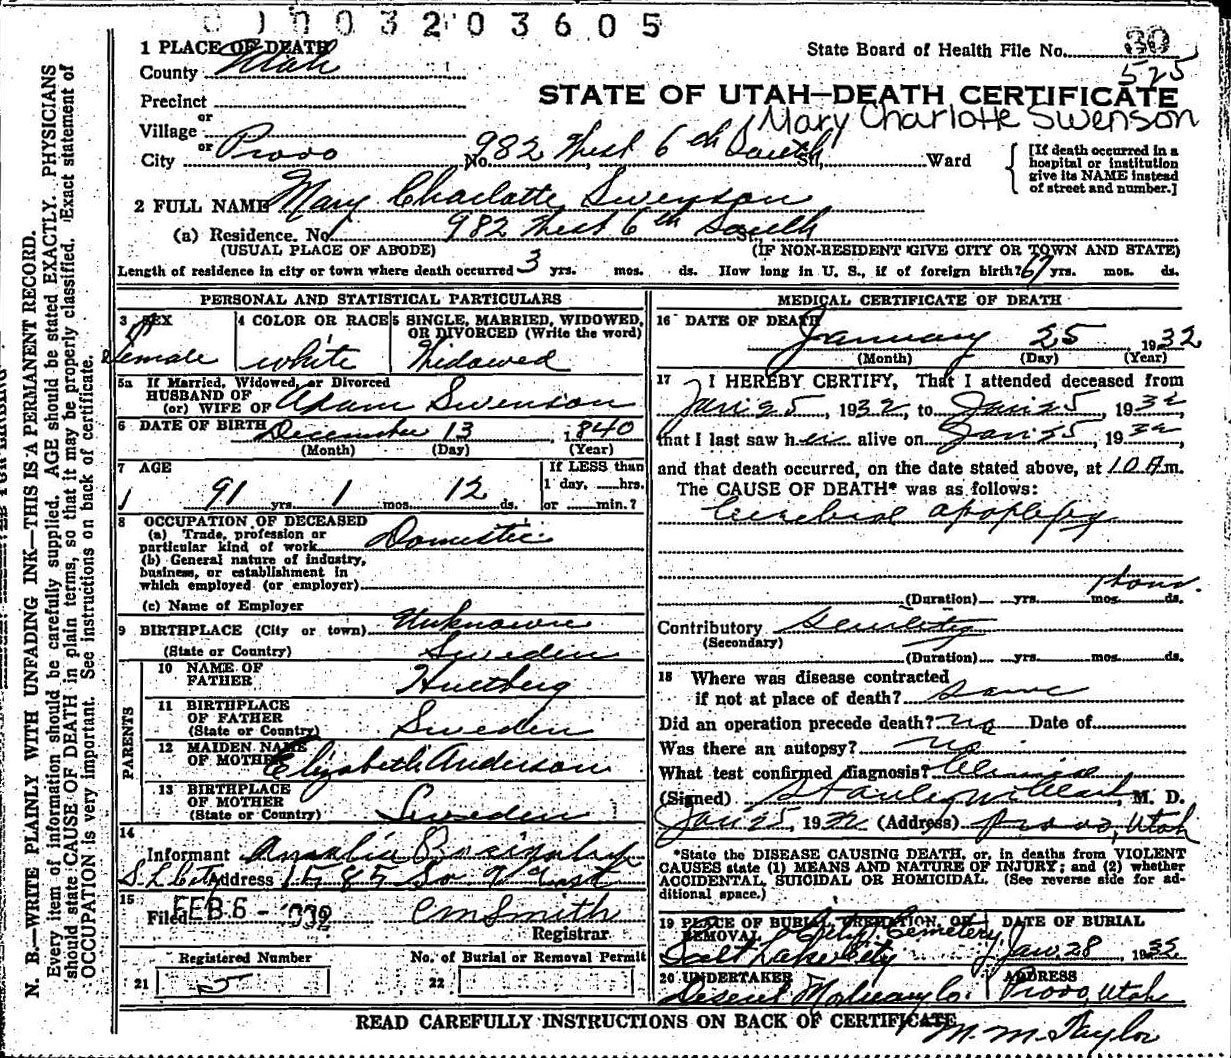 0 1 0 0 3 2 0 3 6 0 5
State Board of Health File No. 30
525
STATE OF UTAH—DEATH CERTIFICATE
Mary Charlotte Swenson
1 PLACE OF DEATH
County Utah
Precinct
or
Village
or
City Provo No. 982 West 6th South St., Ward
[If death occurred in a
hospital or institution
give its NAME instead
of street and number.]
2 FULL NAME Mary Charlotte Swenson
(a) Residence. No. 982 West 6th South St.
(USUAL PLACE OF ABODE) (IF NON-RESIDENT GIVE CITY OR TOWN AND STATE)
Length of residence in city or town where death occurred 3 yrs. mos. ds. How long in U. S., if of foreign birth? 67 yrs. mos. ds.
PERSONAL AND STATISTICAL PARTICULARS
3 SEX
Female
4 COLOR OR RACE
white
5 SINGLE, MARRIED, WIDOWED,
OR DIVORCED (Write the word)
Widowed
5a If Married, Widowed, or Divorced
HUSBAND OF
(or) WIFE OF Adam Swenson
6 DATE OF BIRTH December 13, 1840
(Month) (Day) (Year)
7 AGE
91 yrs. 1 mos. 12 ds.
If LESS than
1 day, hrs.
or min.?
8 OCCUPATION OF DECEASED
(a) Trade, profession or
particular kind of work Domestic
(b) General nature of industry,
business, or establishment in
which employed (or employer)
(c) Name of Employer
9 BIRTHPLACE (City or town) Unknown
(State or Country) Sweden
PARENTS
10 NAME OF
FATHER Hultberg
11 BIRTHPLACE
OF FATHER
(State or Country) Sweden
12 MAIDEN NAME
OF MOTHER Elizabeth Anderson
13 BIRTHPLACE
OF MOTHER
(State or Country) Sweden
14
Informant Amalia
S. L. City Address 1585 So 9th East
15
Filed FEB 6 - 1932 C M Smith
Registrar
Registered Number
21 5
No. of Burial or Removal Permit
22
MEDICAL CERTIFICATE OF DEATH
16 DATE OF DEATH
January 25 1932
(Month) (Day) (Year)
17 I HEREBY CERTIFY, That I attended deceased from
Jan 25, 1932, to Jan 25, 1932
that I last saw her alive on Jan 25, 1932,
and that death occurred, on the date stated above, at 10 A m.
The CAUSE OF DEATH* was as follows:
Cerebral apoplexy
1 hour
(Duration) yrs. mos. ds.
Contributory Senility
(Secondary)
(Duration) yrs. mos. ds.
18 Where was disease contracted
if not at place of death? same
Did an operation precede death? no Date of
Was there an autopsy? no
What test confirmed diagnosis? Clinical
(Signed) Stanley M Clark, M. D.
Jan 25, 1932 (Address) Provo, Utah
*State the DISEASE CAUSING DEATH, or, in deaths from VIOLENT
CAUSES state (1) MEANS AND NATURE OF INJURY; and (2) whether
ACCIDENTAL, SUICIDAL OR HOMICIDAL. (See reverse side for ad-
ditional space.)
19 PLACE OF BURIAL, CREMATION, OR
REMOVAL City Cemetery
Salt Lake City
DATE OF BURIAL
Jan. 28 1932
20 UNDERTAKER
Deseret Mortuary Co.
ADDRESS
Provo, Utah
READ CAREFULLY INSTRUCTIONS ON BACK OF CERTIFICATE
M. M. Taylor
N. B.—WRITE PLAINLY WITH UNFADING INK—THIS IS A PERMANENT RECORD.
Every item of information should be carefully supplied. AGE should be stated EXACTLY. PHYSICIANS
should state CAUSE OF DEATH in plain terms, so that it may be properly classified. Exact statement of
OCCUPATION is very important. See instructions on back of certificate.